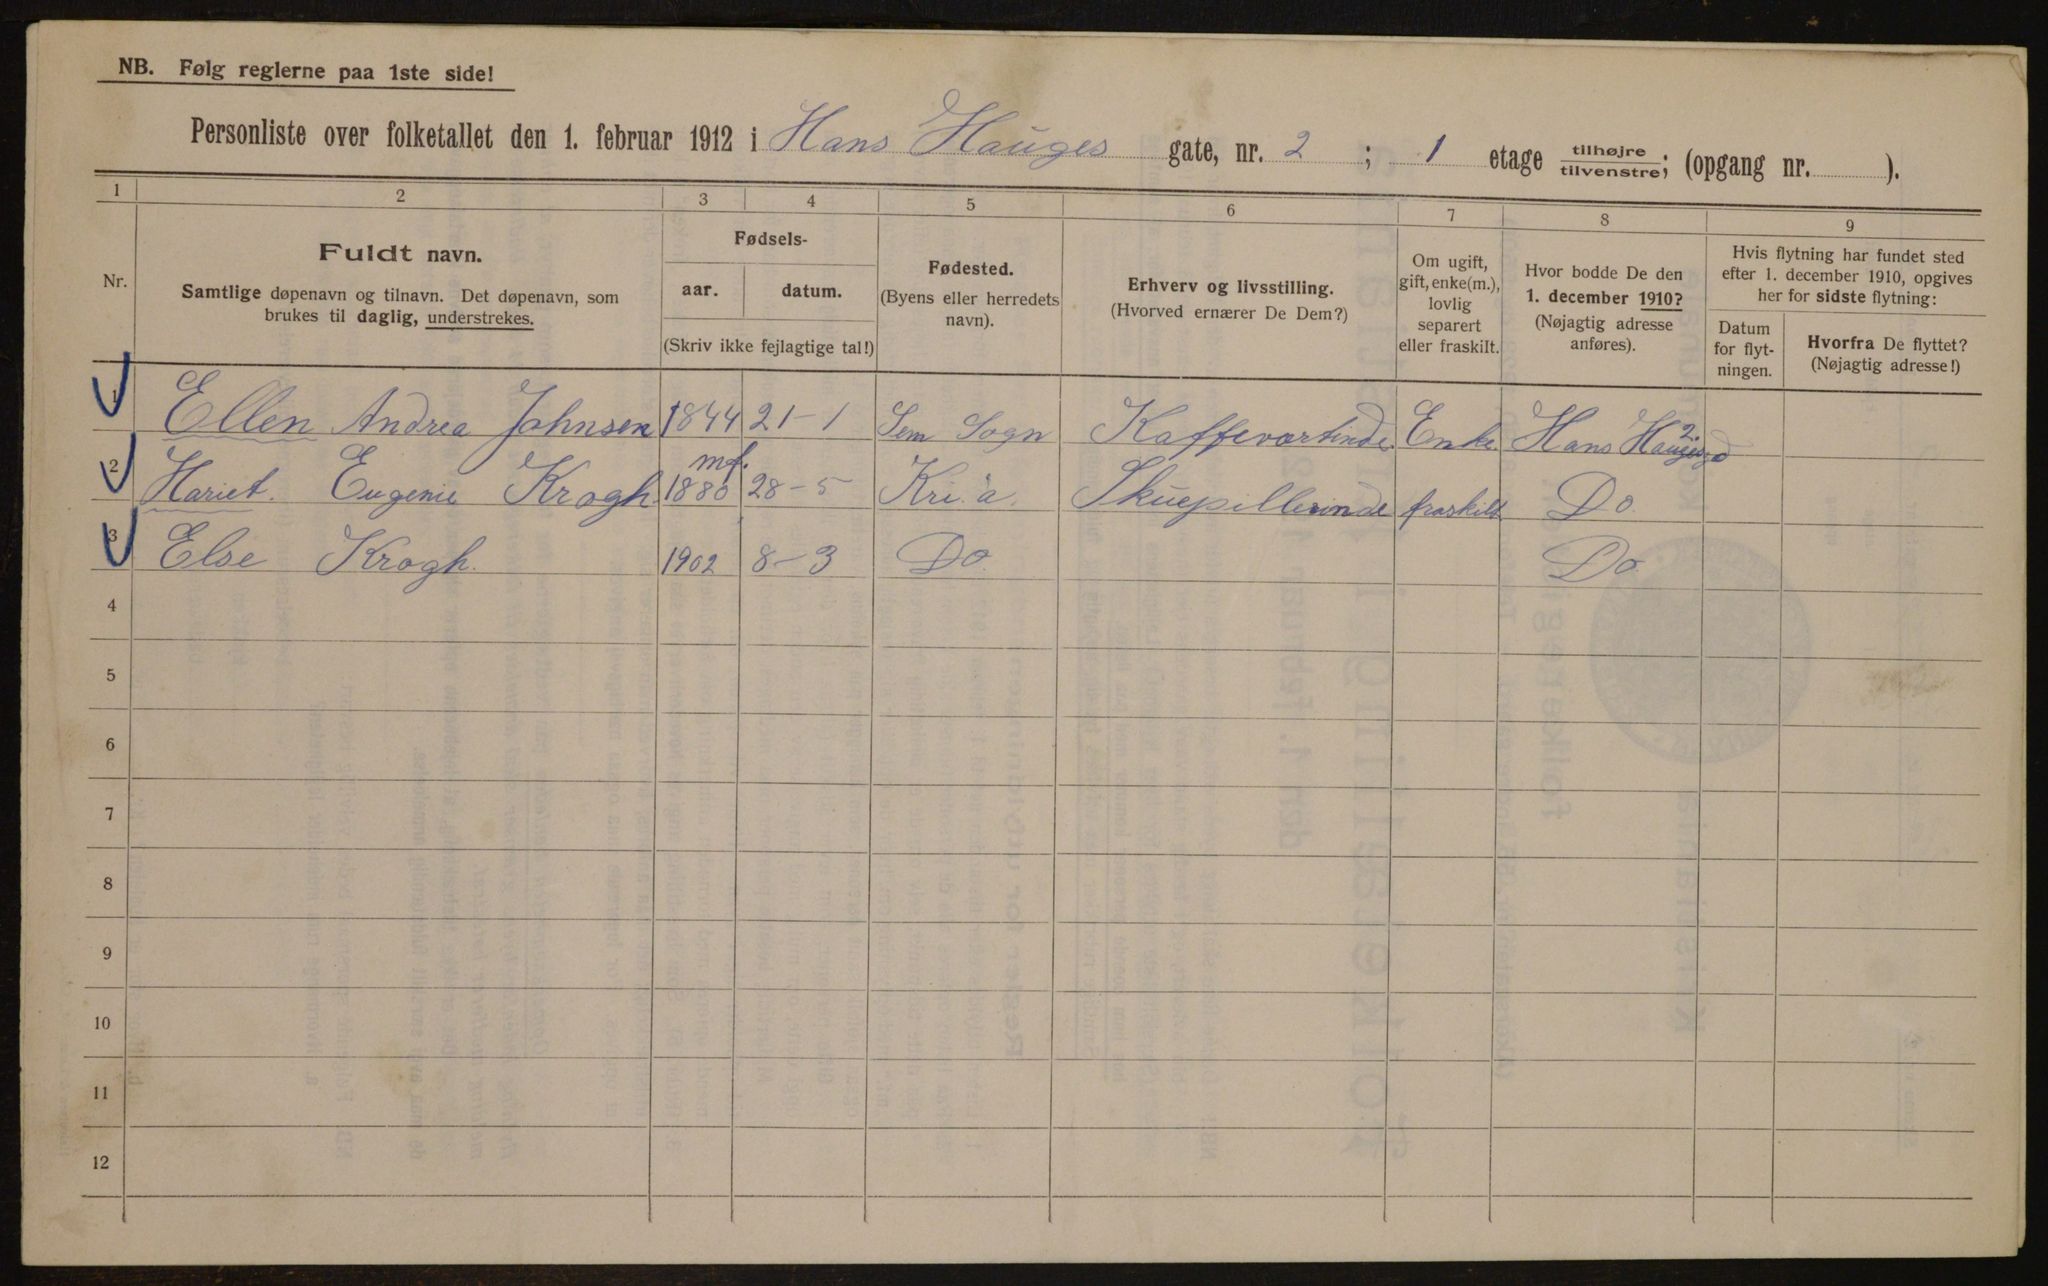 NB. Følg reglerne paa 1ste side!
Personliste over folketallet den 1. februar 1912 i Hans Hauges gate, nr. 2 ; 1 etage tilhøjre/tilvenstre; (opgang nr. ).
1 2 3 4 5 6 7 8 9
Nr.
Fuldt navn.
Samtlige døpenavn og tilnavn. Det døpenavn, som
brukes til daglig, understrekes.
Fødsels-
aar. datum.
(Skriv ikke fejlagtige tal!)
Fødested.
(Byens eller herredets
navn).
Erhverv og livsstilling.
(Hvorved ernærer De Dem?)
Om ugift,
gift, enke(m.),
lovlig
separert
eller fraskilt.
Hvor bodde De den
1. december 1910?
(Nøjagtig adresse
anføres).
Hvis flytning har fundet sted
efter 1. december 1910, opgives
her for sidste flytning:
Datum
for flyt-
ningen.
Hvorfra De flyttet?
(Nøjagtig adresse!)
1 Ellen Andrea Johnsen 1844 21-1 Sem Sogn Kaffeværtinde Enke Hans Haugesgd 2.
mf.
2 Hariet. Eugenie Krogh 1880 28-5 Kri.a. Skuepillerinde fraskilt Do
3 Else Krogh. 1902 8-3 Do. Do.
4
5
6
7
8
9
10
11
12